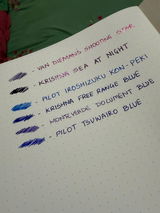 - VAN DIEMANS SHOOTING STAR
- KRISHNA SEA AT NIGHT
- PILOT IROSHIZUKU KON-PEKI
- KRISHNA FREE RANGE BLUE
- MONTEVERDE DOCUMENT BLUE
- PILOT TSUWAIRO BLUE